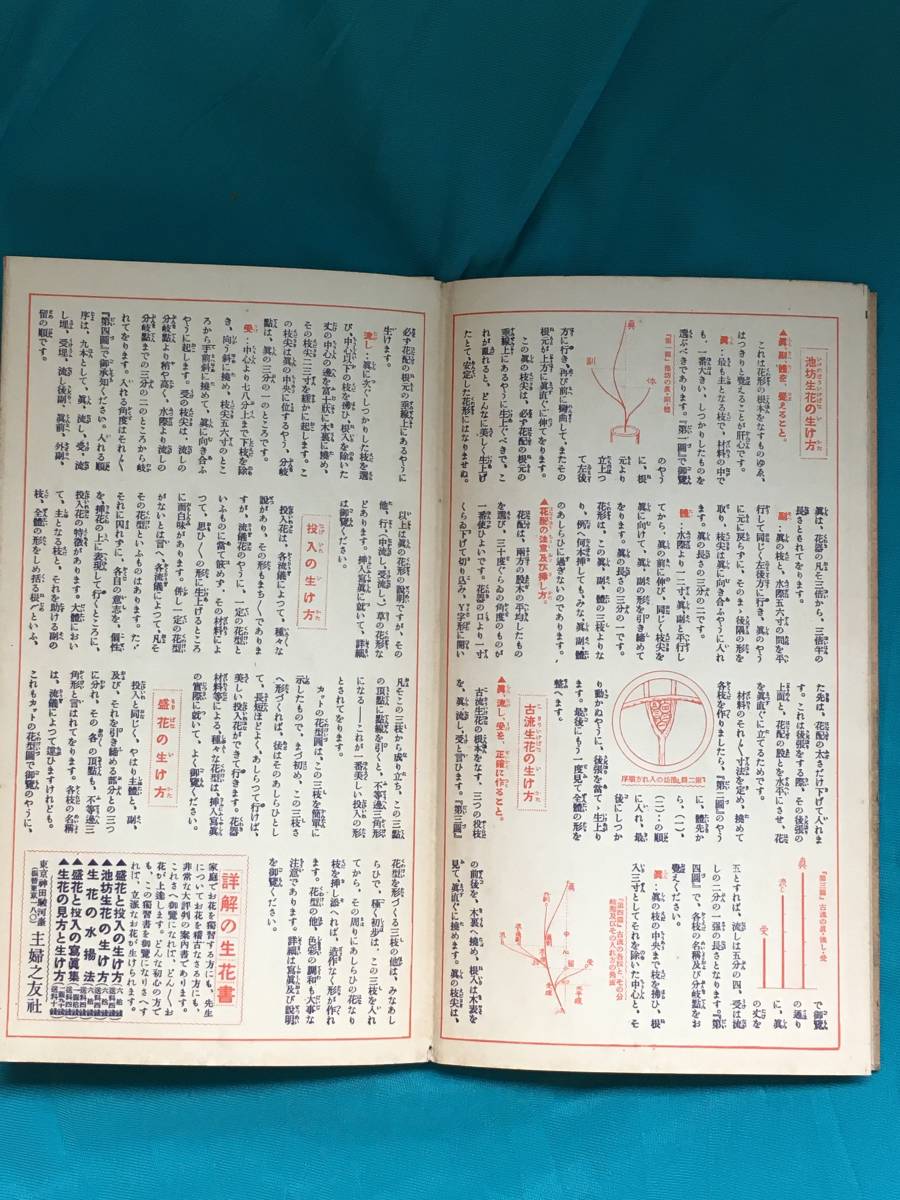 池坊生花の生け方
▲眞、副、體を、覺えること。
これは花形の根本をなすものゆゑ、
はつきりと覺えることが肝心です。
眞…最も主となる枝で、材料の中で
も、一番大きい、しつかりしたものを
選ぶべきであります。『第一圖』で御覽
のやう
に、根
元より
立上つ
て左後
方に行き、再び前に彎曲して、またその
根元が上方に眞直ぐに伸てをります。
この眞の枝先は、必ず花配の根元の
垂線上にあるやうに生上ぐべきで、こ
れが亂れると、どんなに美しく生上げ
たとて、安定した花形にはなりませぬ。
眞
副
体
『第一圖』池坊の眞・副・體
眞は、花器の凡そ三倍から、三倍半の
長さとされてをります。
副…眞の枝と、水際五六寸の間を平
行して同じく左後方に行き、眞のやう
に元に戻らずに、そのまゝ後隅の形を
取り、枝先は眞に向き合ふやうに入れ
ます。眞の長さの三分の二です。
體…水際より一二寸、眞、副と平行し
てから、眞の前に伸び、同じく枝先を
眞に向けて、眞、副の形を引き締めて
をります。眞の長さの三分の一です。
花形は、この眞、副、體の三枝よりな
り、例へ何本挿しても、みな、眞、副、體
のあしらひに過ぎないのであります。
▲花配の注意及び挿し方。
花配は、兩方の股木の平均したもの
を選び、三十度ぐらゐの角度のものが
一番使ひよいです。花器の口より一寸
くらゐ下げて切り込み、Y字形に開い
た先は、花配の太さだけ下げて入れま
す。これは後張をする際、その後張の
上面と、花配の股とを水平にさせ、花
を眞直ぐに立てるためです。
材料のそれ〲寸法を定め、撓めて
各枝を作りましたら、『第二圖』のやう
に、體先か
ら、(一)、
(二)…の順
に入れ、最
後にしつか
り動かぬやうに、後張を當て、生上り
ます。最後にもう一度見て全體の形を
整へます。
『第二圖』池坊の入れ方順序
古流生花の生け方
▲眞、流し、受を、正確に作ること。
古流生花の根本をなす、三つの役枝
を、眞、流し、受と言ひます。『第三圖』
『第三圖』古流の眞・流し・受
眞
流し
受
で御覽
の通り
に、眞
の丈を
五とすれば、流しは五分の四、受は流
しの二分の一强の長さとなります。『第
四圖』で、各枝の名稱及び分岐點をお
覺えください。
眞…眞の枝の中央まで枝を拂ひ、根
入三寸としてそれを除いた中心と、そ
『第四圖』古流の各枝と、その分
岐點及びその入れ方の角度
の前後を、木裏へ撓め、根入は木表を
見て、眞直ぐに撓めます。眞の枝先は、
必ず花配の根元の垂線上にあるやうに
生けます。
流し…眞に次ぐしつかりした枝を選
び、中心以下の枝を拂ひ、根入を除いた
丈の中心の邊を富士狀に木裏に撓め、
その枝先二三寸を緩かに起します。こ
の枝先は眞の中央に位するやう、分岐
點は、眞の三分の一のところです。
受…中心より七八分上まで下枝を除
き、向う斜に撓め、枝先五六寸のとこ
ろから手前斜に撓めて、眞に向き合ふ
やうに起します。受の枝先は、流しの
分岐點より稍や高く、水際より流しの
分岐點までの三分の二のところから岐
れてをります。入れる角度はそれ〲
『第四圖』で御承知ください。入れる順
序は、九本として、眞、流し、受、流
し埋、受埋、流し後副、眞前、外副、
留の順です。
以上は眞の花形の說明ですが、その
他、行(中流し、受流し)、草の花形な
どあります。挿入寫眞に就いて、詳細
は御覽ください。
投入の生け方
投入花は、各流儀によつて、種々な
說があり、その形もまち〱でありま
すが、流儀花のやうに、一定の花型と
いふものに當て嵌めず、その材料によ
つて、思ひ〱の形に生上げるところ
に面白味があります。併し一定の花型
がないとは言へ、各流儀によつて、凡そ
その花型といふものはあります。たゞ
それに囚れずに、各自の意志を、個性
を、挿花の上に表現して行くところに、
投入花の特徵があります。大體におい
て、主となる枝と、それを助ける副の
枝、全體の形をしめ括る根〆といふ、
凡そこの三枝から成り立ち、この三點
の頂點に點線を引くと、不等邊三角形
になる——これが一番美しい投入の形
とされてをります。
カットの花型圖は、この三枝を簡單に
示したもので、まづ初め、この三枝さ
へ形づくれば、後はそのあしらひとし
て、長短ほどよく、あしらつて行けば、
美しい投入花ができて行きます。花器
材料等による種々な花型は、挿入寫眞
の實際に就いて、よく御覽ください。
盛花の生け方
投入と同じく、やはり主體と、副、
及び、それを引き締める部分との三つ
に分れ、その各〻の頂點も、不等邊三
角形と言はれてをります。各枝の名稱
は、流儀によつて違ひますけれども、
これもカットの花型圖で御覽のやうに、
花型を形づくる三枝の他は、みなあし
らひで、極く初步は、この三枝を入れ
てから、その周りにあしらひの花なり
枝を挿し添へれば、造作なく形が作れ
ます。花型の他、色彩の調和も大事な
注意であります。詳細は寫眞及び說明
を御覽ください。
詳解の生花書
家庭でお花を獨習する方にも、先生
についてお花を稽古なさる方にも、
非常な大評判の案內書であります。
これさへ御覽になれば、どん〱お
花が上達します。どんな初心の方で
も、この獨習書を御覽になりさへす
れば、立派なお花が生けられます。
▲盛花と投入の生け方
▲池坊生花の生け方
▲生花の水揚法
▲盛花と投入の寫眞集
▲生花の見方と生け方
東京神田駿河臺
主婦之友社